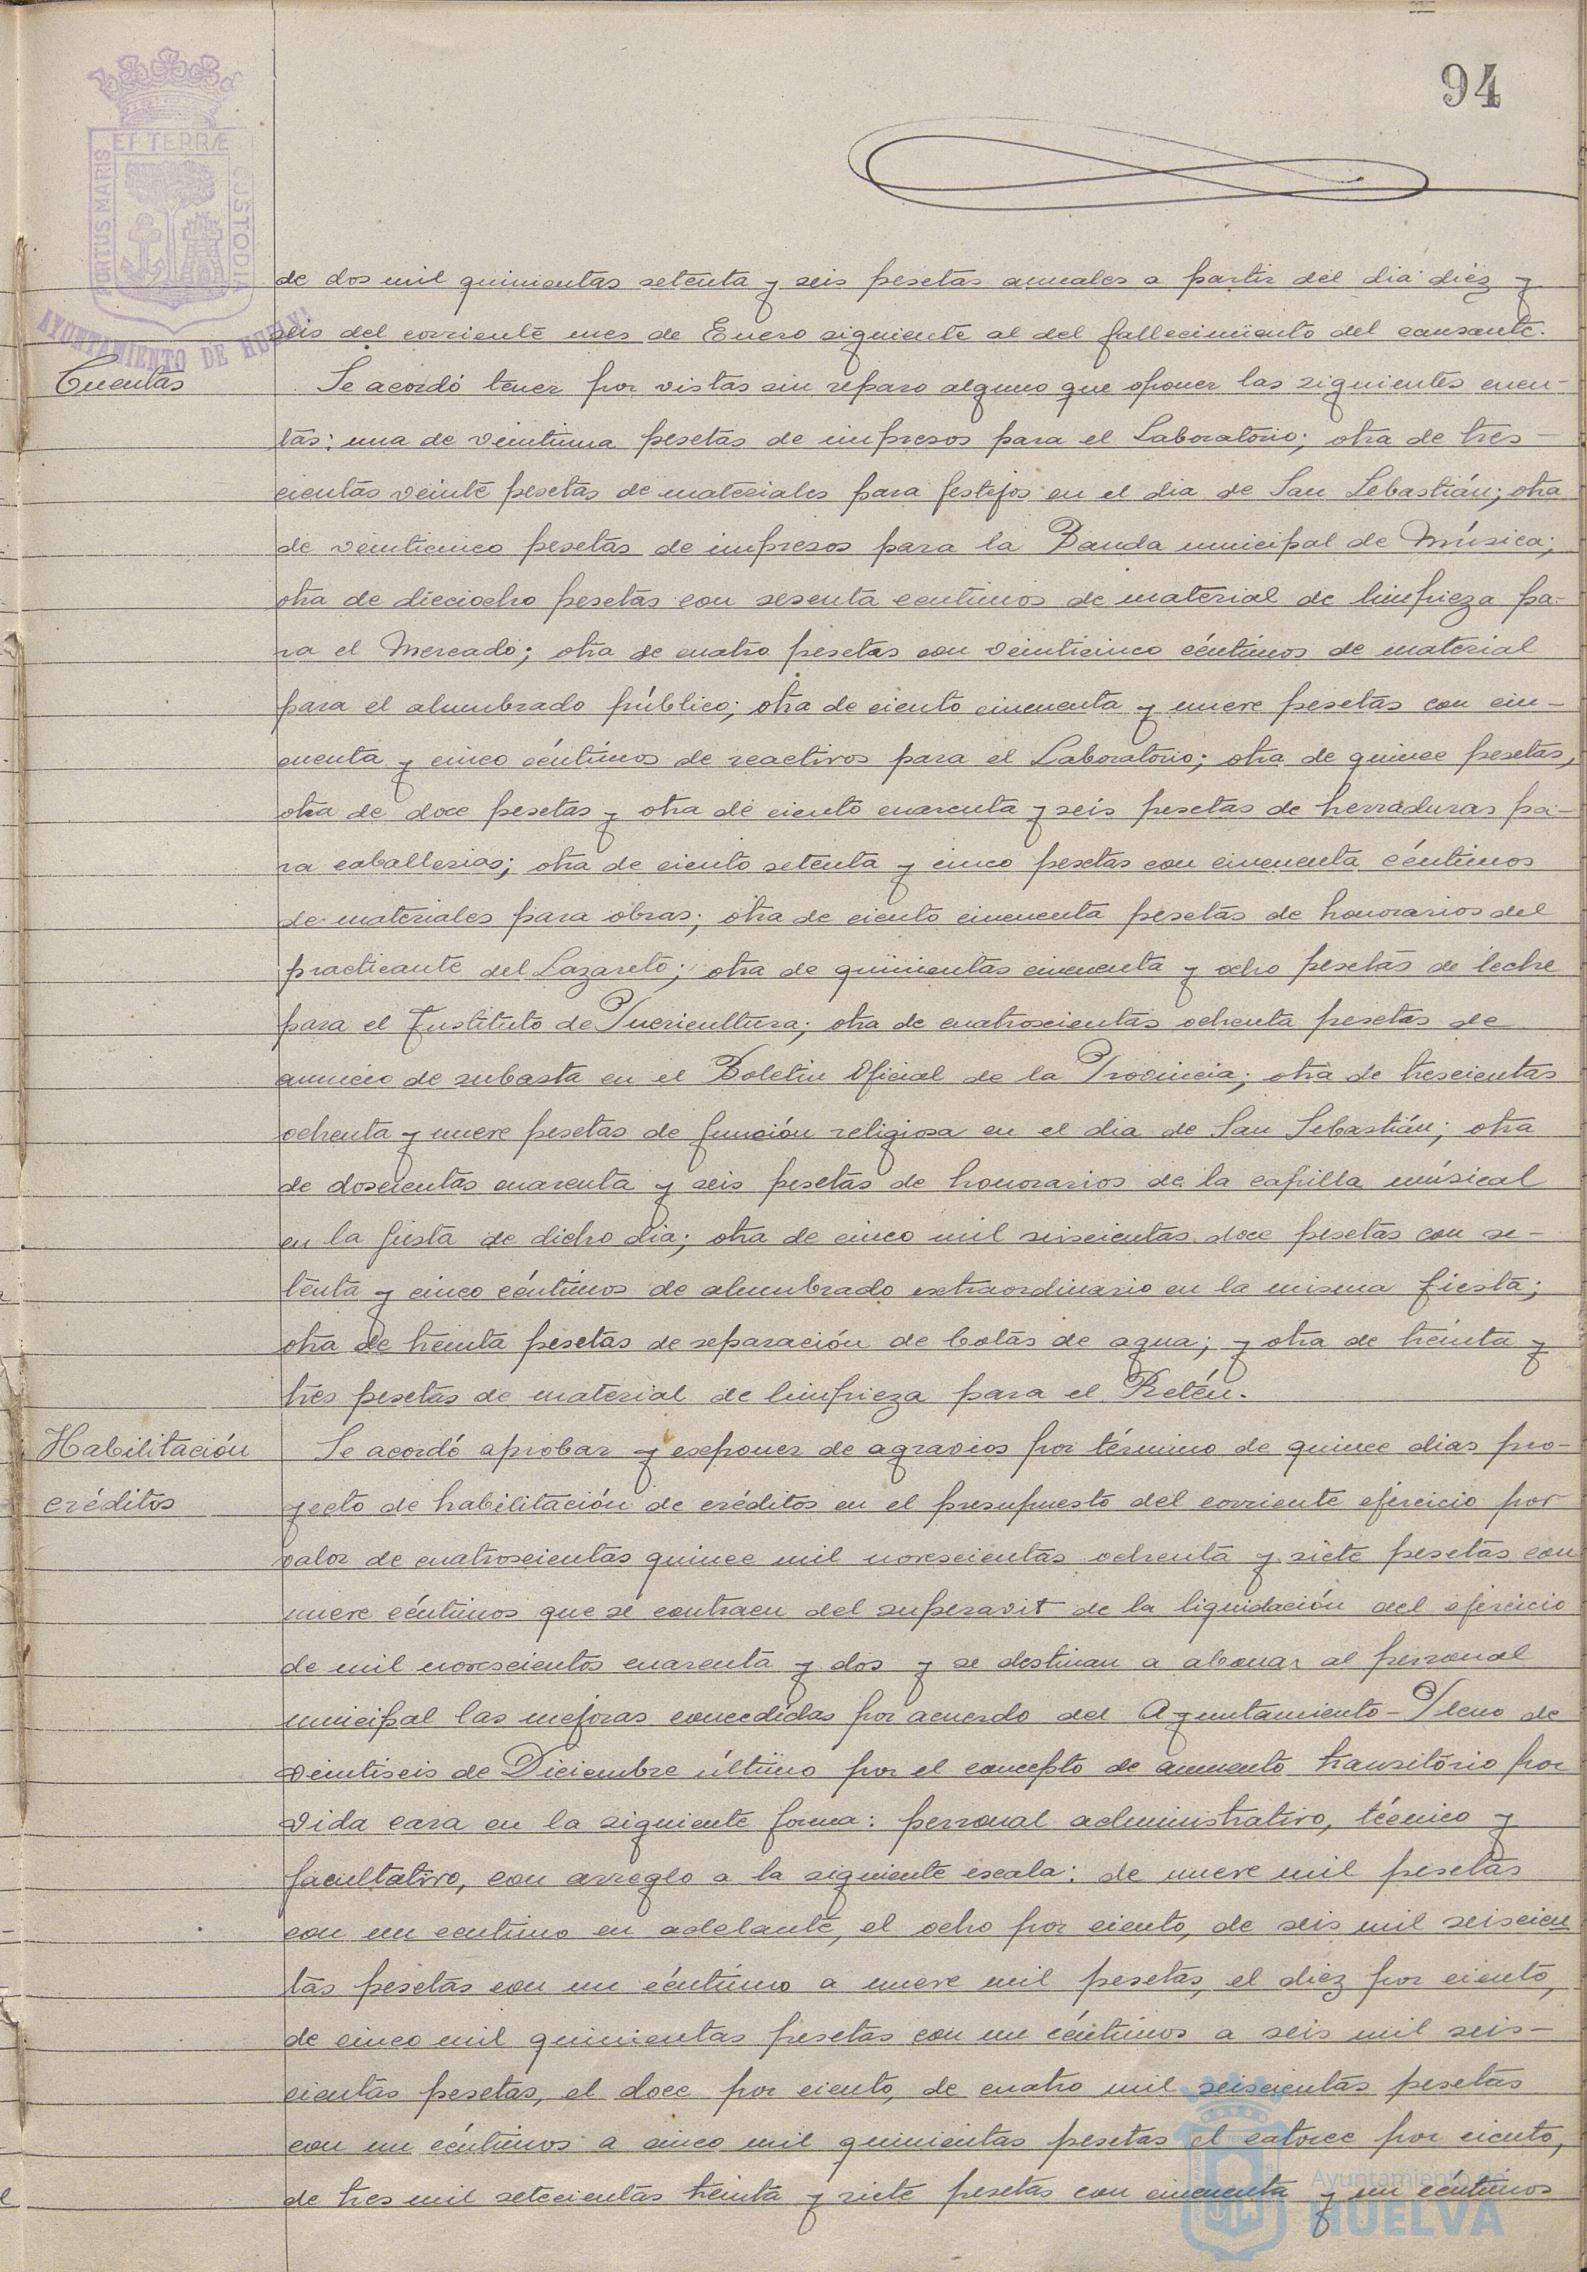 94
PORTUS MARIS ET TERRÆ CUSTODIA
AYUNTAMIENTO DE HUELVA
de dos mil quinientas setenta y seis pesetas anuales a partir del dia diez y
seis del corriente mes de Enero siguiente al del fallecimiento del causante.
Cuentas
Se acordó tener por vistas sin reparo alguno que oponer las siguientes cuen-
tas: una de veintiuna pesetas de impresos para el Laboratorio; otra de tres-
cientas veinte pesetas de materiales para festejos en el dia de San Sebastián; otra
de veinticinco pesetas de impresos para la Banda municipal de Música;
otra de dieciocho pesetas con sesenta centimos de material de limpieza pa-
ra el Mercado; otra de cuatro pesetas con veinticinco céntimos de material
para el alumbrado público; otra de ciento cincuenta y nueve pesetas con cin-
cuenta y cinco céntimos de reactivos para el Laboratorio; otra de quince pesetas,
otra de doce pesetas y otra de ciento cuarenta y seis pesetas de herraduras pa-
ra caballerias; otra de ciento setenta y cinco pesetas con cincuenta céntimos
de materiales para obras; otra de ciento cincuenta pesetas de honorarios del
practicante del Lazareto; otra de quinientas cincuenta y ocho pesetas de leche
para el Instituto de Puericultura; otra de cuatroscientas ochenta pesetas de
anuncio de subasta en el Boletin Oficial de la Provincia; otra de trescientas
ochenta y nueve pesetas de función religiosa en el dia de San Sebastián; otra
de doscientas cuarenta y seis pesetas de honorarios de la capilla músical
en la fiesta de dicho dia; otra de cinco mil seiscientas doce pesetas con se-
tenta y cinco céntimos de alumbrado extraordinario en la misma fiesta;
otra de treinta pesetas de reparación de botas de agua; y otra de treinta y
tres pesetas de material de limpieza para el Retén.
Habilitación
créditos
Se acordó aprobar y exponer de agravios por término de quince dias pro-
yecto de habilitación de créditos en el presupuesto del corriente ejercicio por
valor de cuatroscientas quince mil novescientas ochenta y siete pesetas con
nueve céntimos que se contraen del superavit de la liquidación del ejercicio
de mil novescientos cuarenta y dos y se destinan a abonar al personal
municipal las mejoras concedidas por acuerdo del Ayuntamiento-Pleno de
veintiseis de Diciembre último por el concepto de aumento transitório por
vida cara en la siguiente forma: personal administrativo, técnico y
facultativo, con arreglo a la siguiente escala: de nueve mil pesetas
con un centimo en adelante, el ocho por ciento, de seis mil seiscien
tas pesetas con un céntimo a nueve mil pesetas, el diez por ciento,
de cinco mil quinientas pesetas con un céntimos a seis mil seis-
cientas pesetas, el doce por ciento, de cuatro mil seiscientas pesetas
con un céntimos a cinco mil quinientas pesetas el catorce por ciento,
de tres mil setecientas treinta y siete pesetas con cincuenta y un céntimos
Ayuntamiento de
HUELVA